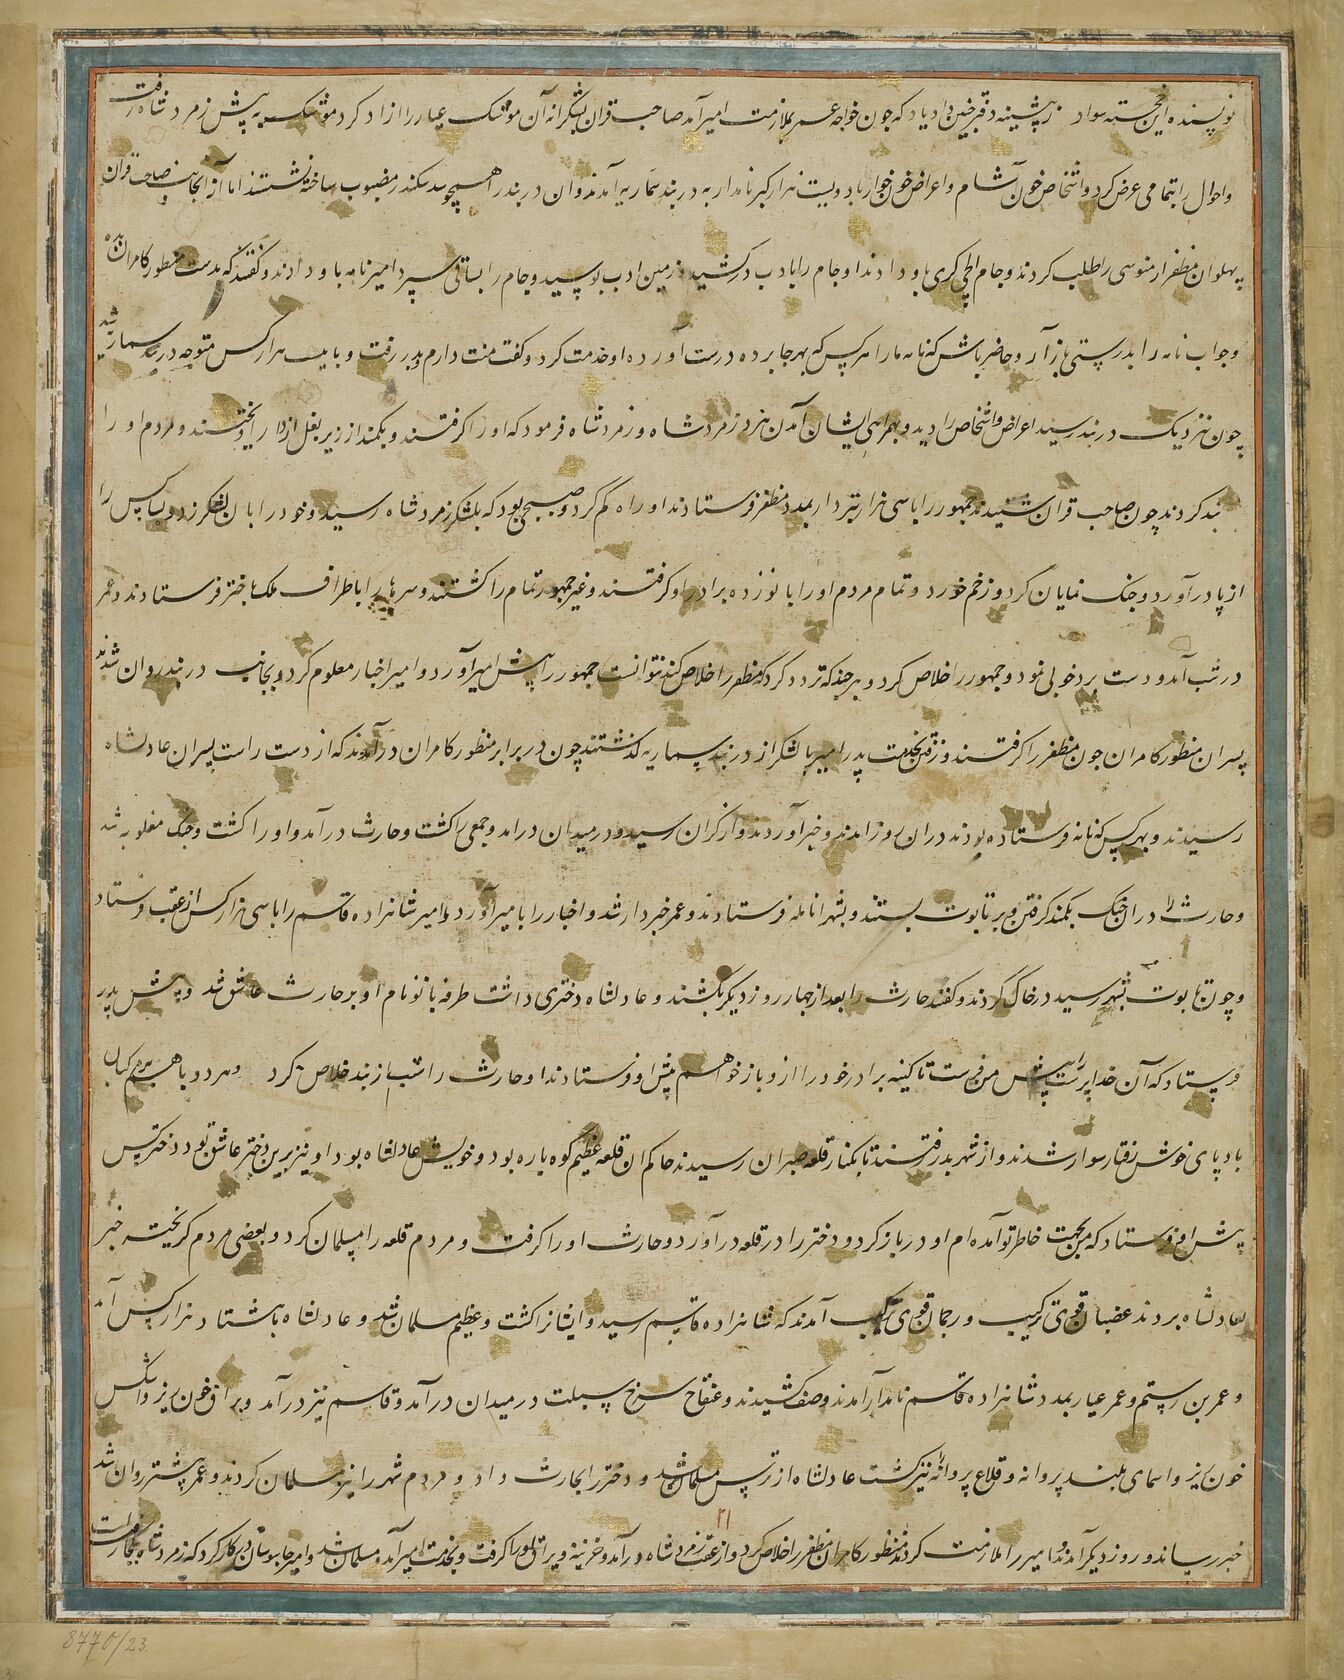 نویسنده این خجسته سواد ز پیشینه دفتر چنین داد یاد که چون خواجه عمر بملازمت امیر آمد صاحب قران بشکرانه آن موشک عیار را ازاد کرد موشک به پیش زمرد شاه رفت
واحوال را بتمامی عرض کرد و اشخاص خون آشام و اعراض خون خوار با دویست هزار کبر نامدار به دربند سماریه آمدند و ان دربند را همچو سد سکندر مضبوب ساخته نشستند اما از انجانب صاحب قران
پهلوان مظفر ارمنوسی را طلب کردند و جام ایلچی کری باو دادند او جام را بادب درکشید و زمین ادب بوسید و جام را بساقی سپرد امیر نامه باو دادند و کفتند که بدست منظور کامران بده
و جواب نامه را بدرستی باز آر و حاضر باش که نامه مارا هر کس که بهر جا برده درست آورده او خدمت کرد و کفت منت دارم و بدر رفت و با بیست هزار کس متوجه دربند سماریه شد
چون نزدیک دربند رسید اعراض و اشخاص را دید و بهمراهی ایشان آمدن نزد زمرد شاه و زمرد شاه فرمود که او را کرفتند و بکمند از زیر بغل از دار آویختند و مردم او را
بند کردند چون صاحب قران شنیدند جمهور را با سی هزار تیردار بمدد مظفر فرستادند او راه کم کرد و صبحی بود که بلشکر زمرد شاه رسید و خود را بان لشکر زد و بسیا کس را
از پا درآورد و جنک نمایان کرد و زخم خورد و تمام مردم او را با نوزده برادر او کرفتند و غیر جمهور تمام را کشتند و سرها را باطراف ملک باختر فرستادند و عمر
در شب آمد و دست برد خوبی نمود و جمهور را خلاص کرد و هر چند که تردد کرد که مظفر را خلاص کند نتوانست جمهور را پیش امیر آورد و امیر اخبار معلوم کرد و بجانب دربند روان شدند
پسران منظور کامران چون مظفر را کرفتند و رفتن بخدمت پدر امیر با لشکر از دربند سماریه کذشتند چون در برابر منظور کامران درآمدند که از دست راست پسران عادلشاه
رسیدند و بهر کس که نامه فرستاده بودند دران روز آمدند و خبر آوردند و ارکران رسید و در میدان درامد و جمعی را کشت و حارث درآمد و او را کشت و جنک مغلوبه شد
و حارث را دران جنک بکمند کرفتن و بر تابوت بستند و بشهر انامله فرستادند و عمر خبردار شد و اخبار را بامیر آورد و امیر شاهزاده قاسم را با سی هزار کس از عقب فرستاد
و چون تابوت بشهر رسید در خاک کردند و کفتند حارث را بعد از چهار روز دیکر بکشند و عادلشاه دختری داشت طرفه بانو نام او بر حارث عاشق شد و پیش پدر
فرستاد که آن خداپرست را پیش من فرست تا کینه برادر خود را ازو باز خواهم پیش او فرستادند او حارث را شب از بند خلاص کرد و هر دو با هم بر مرکبان
بادپای خوش رفتار سوار شدند و از شهر بدر رفتند تا بکنار قلعه صبران رسیدند حاکم ان قلعه عظیم کوه باره بود و خویش عادلشاه بود او نیز برین دختر عاشق بود دختر کس
پیش او فرستاد که من بجهت خاطر تو آمده ام او در باز کرد و دختر را در قلعه درآورد و حارث او را کرفت و مردم قلعه را مسلمان کرد و بعضی مردم کریخته خبر
بعادلشاه بردند عضبان قوی ترکیب و رجمان قوی ترکیب آمدند که شاهزاده قاسم رسید و ایشانرا کشت و عظیم مسلمان شد و عادلشاه با هشتاد هزار کس آمد
و عمر بن رستم و عمر عیار بمدد شاهزاده قاسم نامدار آمدند و صف کشیدند و عنقاح سرخ سبلت در میدان درآمد و قاسم نیز درآمد و براق خون ریز و اشکس
خون ریز و اسمای بلند پروانه و قلاع پروانه را نیز کشت عادلشاه از ترس مسلمان شد و دختر را بحارث داد و مردم شهر را نیز مسلمان کردند و عمر پیشتر روان شد
خبر رساند و روز دیکر آمدند و امیر را ملازمت کردند منظور کامران مظفر را خلاص کرد و از عقب زمرد شاه درآمد و خزینه و یراق او را کرفت و بخدمت امیر آمد و مسلمان شد و امیر جاسوسان در کار کرد که زمرد شاه بکجا رفته است
۲۱
8770/23.